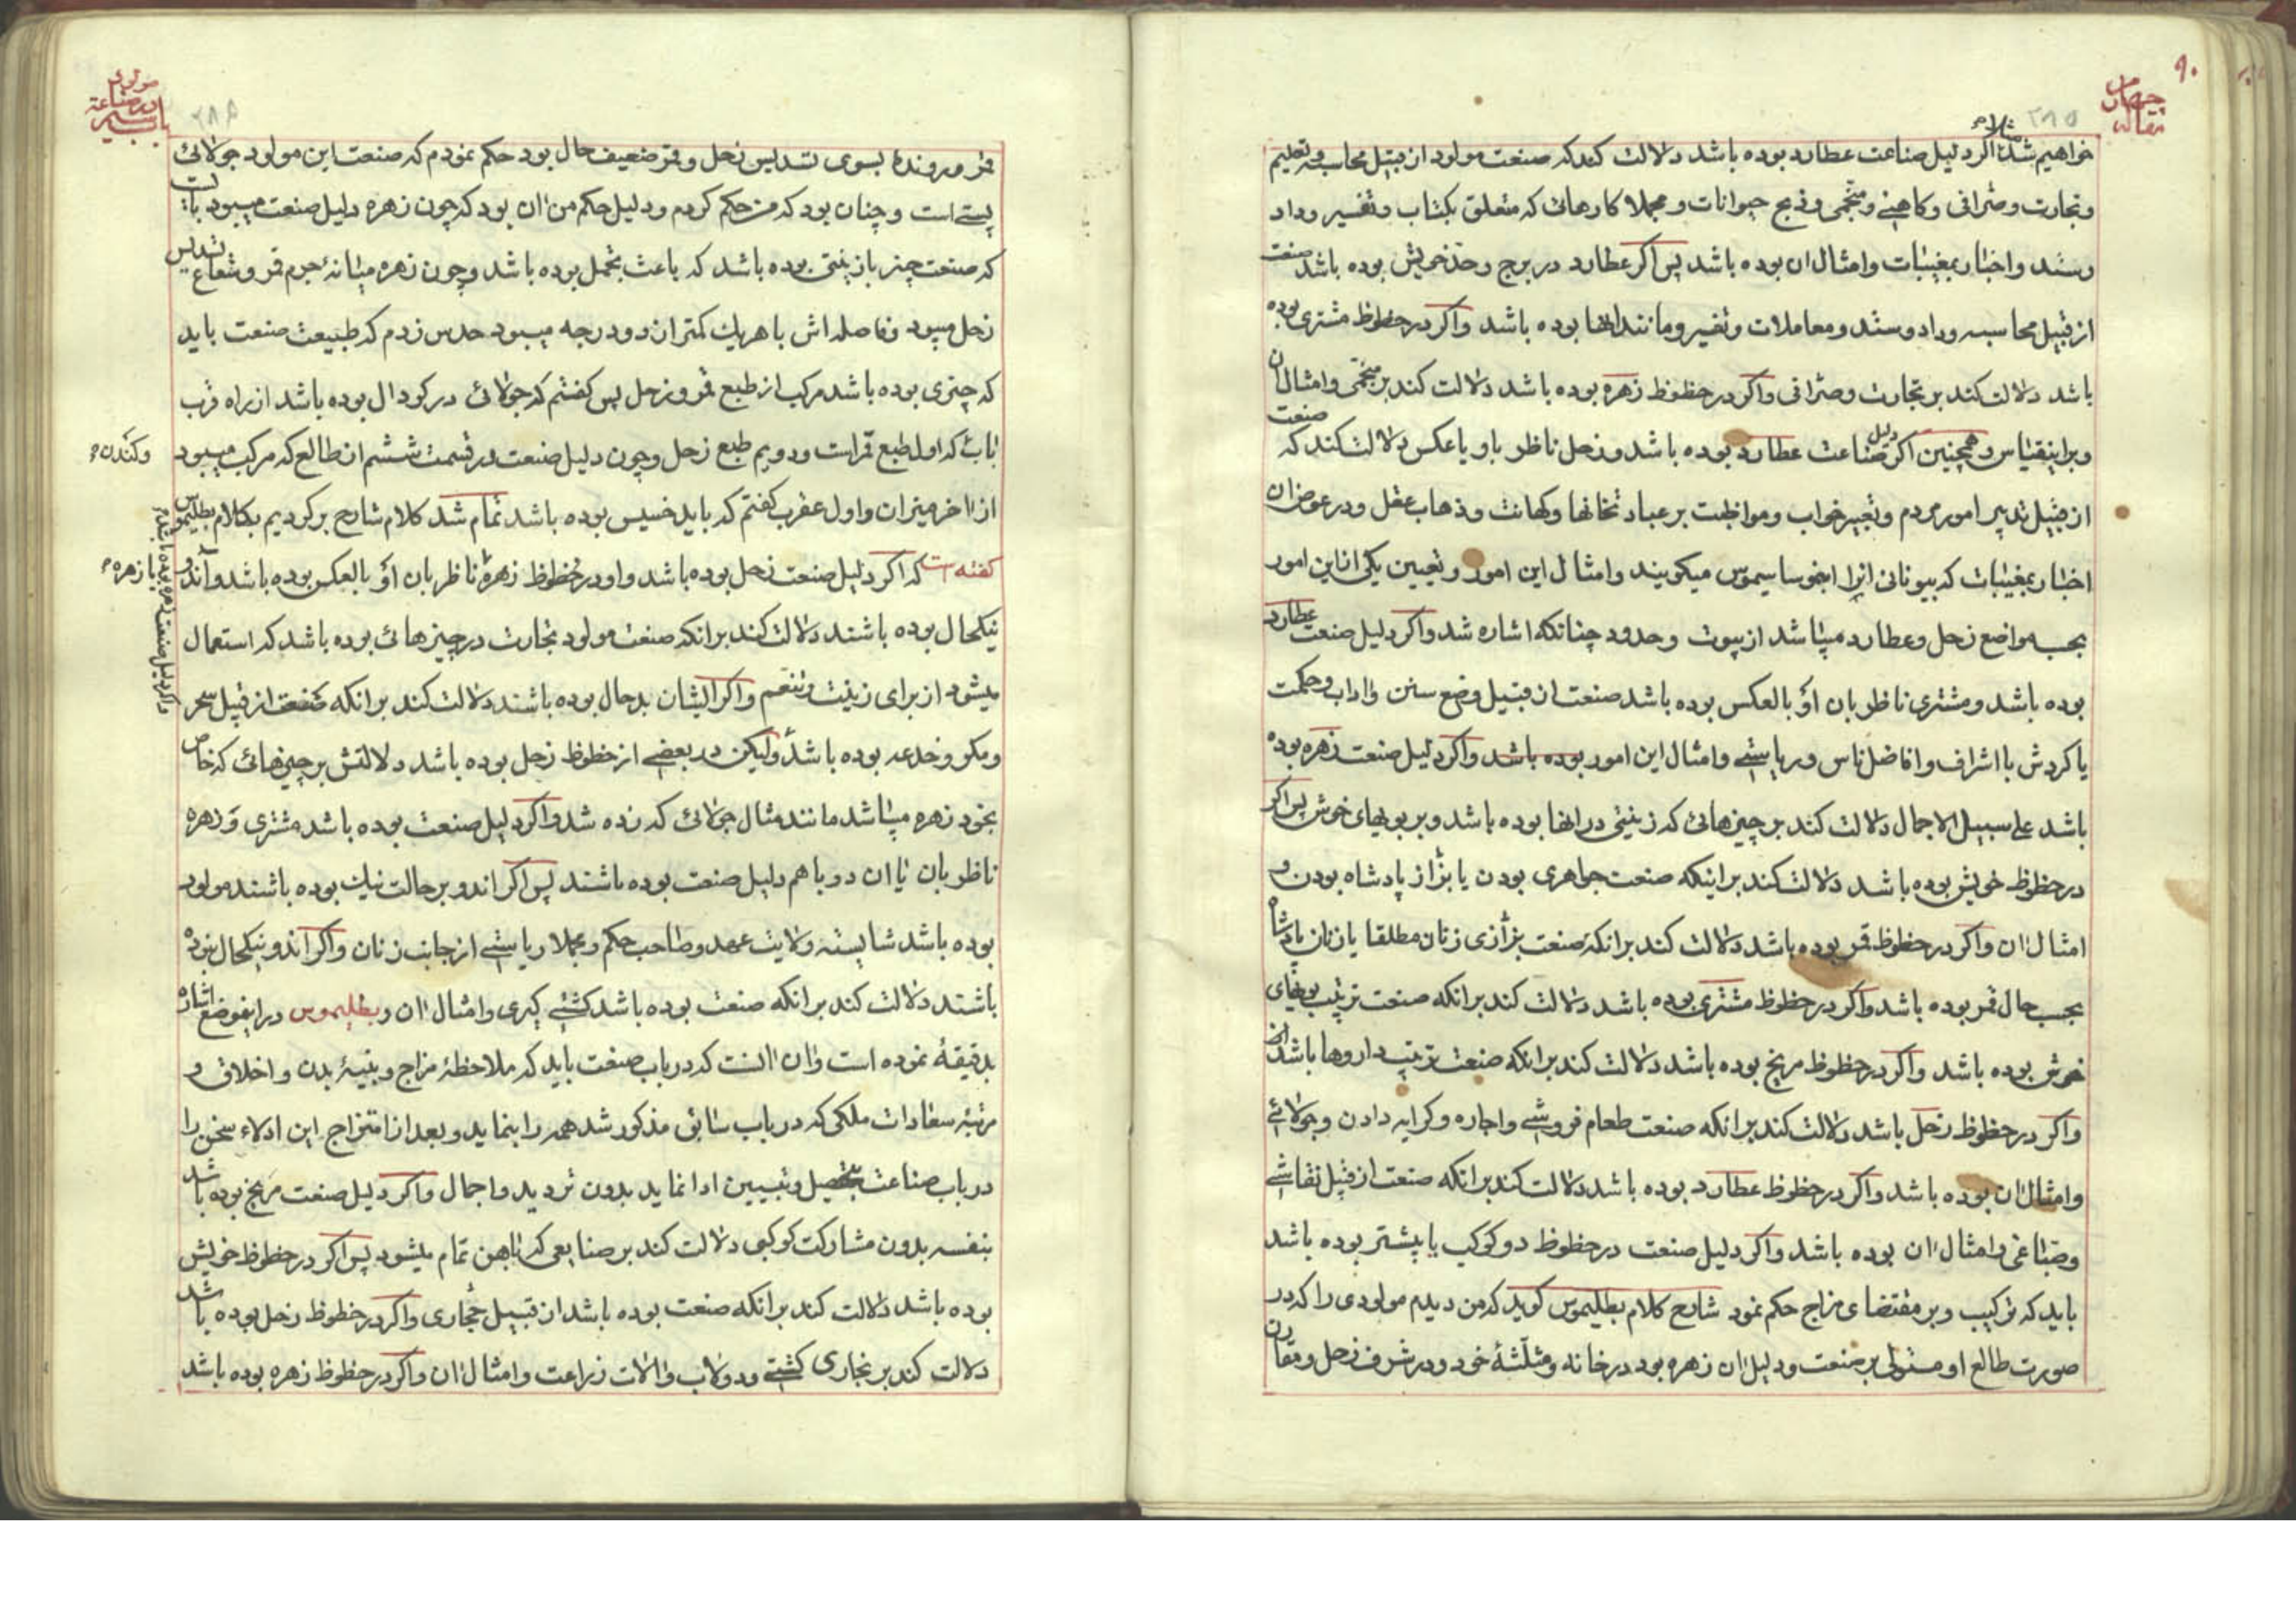 ۹۰
مقاله
۲۸۵
مثلا م
خواهیم شد اکر دلیل صناعت عطارد بوده باشد دلالت کند که صنعت مولود از قبیل محاسبه و تعلیم
و تجارت و صرافی و کاهنی و منجمی و ذبح حیوانات و مجملا کارهائی که متعلق بکتاب و تفسیر و داد
و ستد و اخبار بمغیبات و امثال ان بوده باشد پس اکر عطارد در برج و حد خویش بوده باشد صنعت
از قبیل محاسبه و داد و ستد و معاملات و تفسیر و مانند انها بوده باشد و اکر در حظوظ مشتری بوده
باشد دلالت کند بر تجارت و صرافی و اکر در حظوظ زهره بوده باشد دلالت کند بر منجمی و امثال ان
و براینقیاس و همچنین اکر دلیل صناعت عطارد بوده باشد و زحل ناظر باو یا عکس دلالت کند که صنعت
از قبیل تدبیر امور مردم و تعبیر خواب و مواظبت بر عبادتخانها و کهانت و ذهاب عقل و در عوض ان
اخبار بمغیبات که بیونانی انرا میکویند و امثال این امور و تعیین یکی از این امور
بحسب مواضع زحل و عطارد میباشد از بیوت و حدود چنانکه اشاره شد و اکر دلیل صنعت عطارد
بوده باشد و مشتری ناظر بان او بالعکس بوده باشد صنعت از قبیل وضع سنن و اداب و حکمت
یا کردش با اشراف و افاضل ناس و ریاستی و امثال این امور بوده باشد و اکر دلیل صنعت زهره بوده
باشد علی سبیل الاجمال دلالت کند بر چیزهائی که زینتی در انها بوده باشد و بر بویهای خوش پس اکر
در حظوظ خویش بوده باشد دلالت کند براینکه صنعت جواهری بودن یا بزاز پادشاه بودن و
امثال ان و اکر در حظوظ قمر بوده باشد دلالت کند برانکه صنعت بزازی زنان مطلقا یا زنان پادشاه
بحسب حال قمر بوده باشد و اکر در حظوظ مشتری بوده باشد دلالت کند برانکه صنعت ترتیب بویهای
خوش بوده باشد و اکر در حظوظ مریخ بوده باشد دلالت کند برانکه صنعت ترتیب داروها باشد
و اکر در حظوظ زحل باشد دلالت کند برانکه صنعت طعام فروشی و اجاره و کرایه دادن و جولائی
و امثال ان بوده باشد و اکر در حظوظ عطارد بوده باشد دلالت کند برانکه صنعت از قبیل نقاشی
و صباغی و امثال ان بوده باشد و اکر دلیل صنعت در حظوظ دو کوکب یا بیشتر بوده باشد
باید که ترکیب و بر مقتضای مزاج حکم نمود شارح کلام بطلیموس کوید که من دیدم مولودی را که در
صورت طالع او مستولی بر صنعت و دلیل ان زهره بود در خانه و مثلثهٔ خود و در شرف زحل و مقارن
باب سیم
در صناعت
مولود
۲۸۶
قمر و رونده بسوی تسدیس زحل و قمر ضعیف حال بود حکم نمودم که صنعت این مولود جولائی
پستی است و چنان بود که من حکم کردم و دلیل حکم من ان بود که چون زهره دلیل صنعت میبود بایست
که صنعت چیز با زینتی بوده باشد که باعث تجمل بوده باشد و چون زهره میانهٔ جرم قمر و شعاع تسدیس
زحل میبود و فاصله اش با هریک کمتر از دو درجه میبود حدس زدم که طبیعت صنعت باید
که چیزی بوده باشد مرکب از طبع قمر و زحل پس کفتم که جولائی در کودال بوده باشد از راه قرب
باب که اول طبع قمر است و دویم طبع زحل و چون دلیل صنعت در قسمت ششم از طالع که مرکب میبود
و کندن م
از اخر میزان و اول عقرب کفتم که باید خسیس بوده باشد تمام شد کلام شارح بر کردیم بکلام بطلیموس
کفته است که اکر دلیل صنعت زحل بوده باشد و او در حظوظ زهره ناظر بان او بالعکس بوده باشد و آندو
با زهره م
و اکر دلیل صنعت زهره بوده باشد م
نیکحال بوده باشند دلالت کند برانکه صنعت مولود تجارت در چیزهائی بوده باشد که استعمال
میشود از برای زینت و تنعم و اکر ایشان بد حال بوده باشند دلالت کند برانکه صنعت از قبیل سحر
و مکر و خدعه بوده باشد و لیکن در بعضی از حظوظ زحل بوده باشد دلالتش بر چیزهائی که خاص
بخود زهره میباشد مانند مثال جولائی که زده شد و اکر دلیل صنعت بوده باشد مشتری و زهره
ناظر بان یا ان دو با هم دلیل صنعت بوده باشند پس اکر اندو بر حالت نیک بوده باشند مولود
بوده باشد شایسته ولایت عهد و صاحب حکم و مجملا ریاستی از جانب زنان و اکر اندو نیکحال نبوده
باشند دلالت کند برانکه صنعت بوده باشد کشتی کیری و امثال ان و بطلیموس در اینموضع اشاره
بدقیقهٔ نموده است و ان انست که در باب صنعت باید که ملاحظهٔ مزاج و بنیهٔ بدن و اخلاق و
مرتبهٔ سعادات ملکی که در باب سابق مذکور شد همه را بنماید و بعد از امتزاج این ادلاء سخن را
در باب صناعت بتحصیل و تبیین ادا نماید بدون تردید و اجمال و اکر دلیل صنعت مریخ بوده باشد
بنفسه بدون مشارکت کوکبی دلالت کند بر صنایعی که باهن تمام میشود پس اکر در حظوظ خویش
بوده باشد دلالت کند برانکه صنعت بوده باشد از قبیل حجاری و اکر در حظوظ زحل بوده باشد
دلالت کند بر نجاری کشتی و دولاب و الات زراعت و امثال ان و اکر در حظوظ زهره بوده باشد